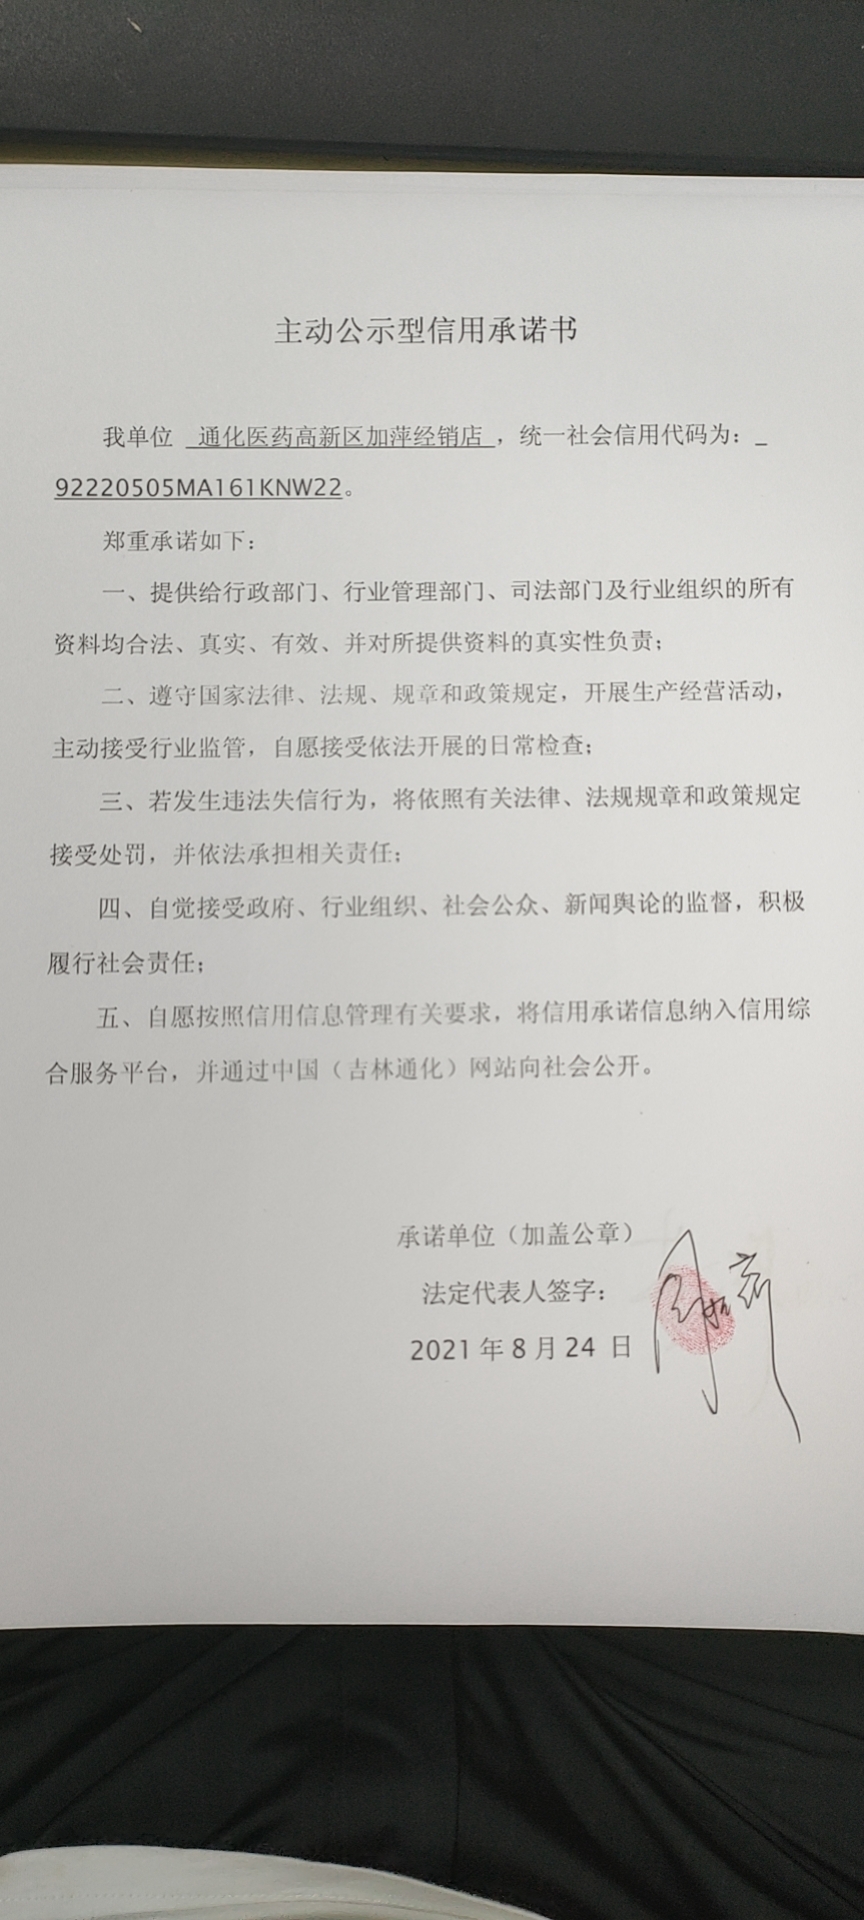 主动公示型信用承诺书
我单位 通化医药高新区加萍经销店 ，统一社会信用代码为：_
92220505MA161KNW22。
郑重承诺如下：
一、提供给行政部门、行业管理部门、司法部门及行业组织的所有
资料均合法、真实、有效、并对所提供资料的真实性负责；
二、遵守国家法律、法规、规章和政策规定，开展生产经营活动，
主动接受行业监管，自愿接受依法开展的日常检查；
三、若发生违法失信行为，将依照有关法律、法规规章和政策规定
接受处罚，并依法承担相关责任；
四、自觉接受政府、行业组织、社会公众、新闻舆论的监督，积极
履行社会责任；
五、自愿按照信用信息管理有关要求，将信用承诺信息纳入信用综
合服务平台，并通过中国（吉林通化）网站向社会公开。
承诺单位（加盖公章）
法定代表人签字：
2021 年 8 月 24 日